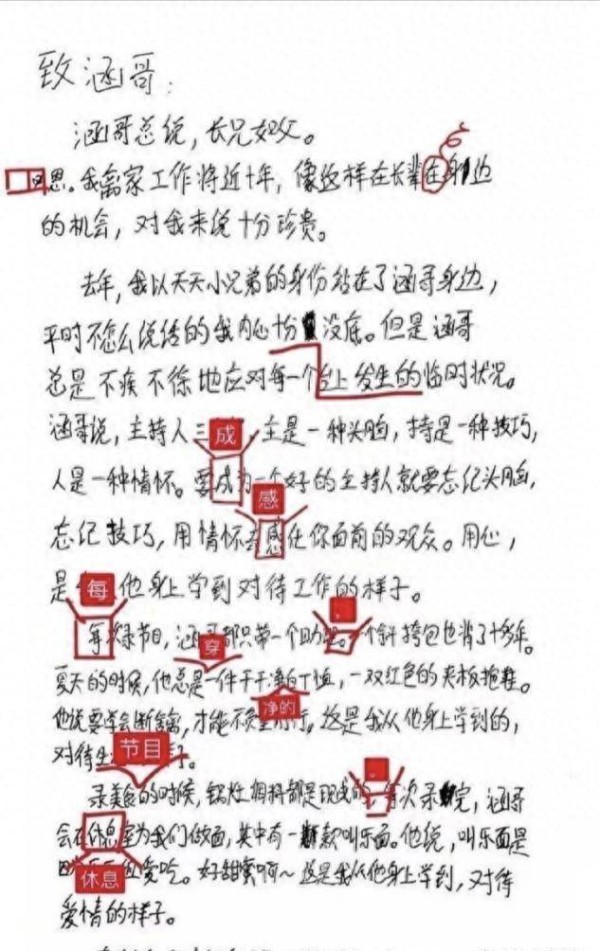 致涵哥：
涵哥总说，长兄如父。
思。我离家工作将近十年，像这样在长辈在身边
的机会，对我来说十分珍贵。
去年，我以天天小兄弟的身份站在了涵哥身边，
平时不怎么说话的我内心十分没底。但是涵哥
总是不疾不徐地应对每一个台上发生的临时状况。
成
涵哥说，主持人三，主是一种头脑，持是一种技巧，
人是一种情怀。要成为一个好的主持人就要忘记头脑，
感
忘记技巧，用情怀去感化你面前的观众。用心，
每
是他身上学到对待工作的样子。
。
每次录节目，涵哥都只带一个助。一个斜挎包也背了十多年。
穿
夏天的时候，他总是一件干干净的T恤，一双红色的夹板拖鞋。
净的
他说要学会断舍离，才能不负行。这是我从他身上学到的，
节目
对待
。
录美食的时候，锅灶调料都是现成的，每次录完，涵哥
会在休息室为我们做面，其中有一款叫乐面。他说，叫乐面是
休息
爱吃。好甜蜜啊～这是我从他身上学到，对待
爱情的样子。